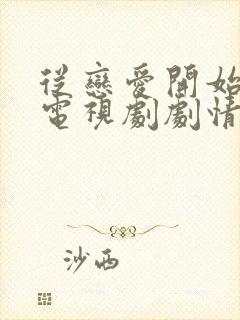 從戀愛開始
電視劇劇情
沙西